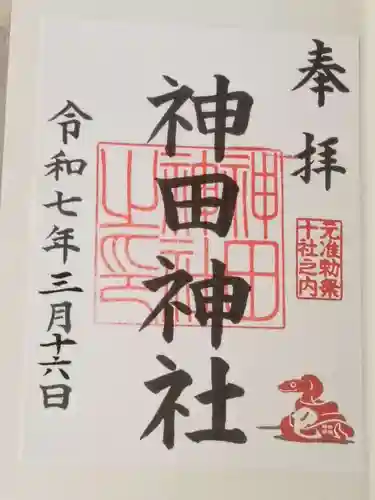 奉拝
元准勅祭
十社之内
神田神社
神田
神社
之印
令和七年三月十六日